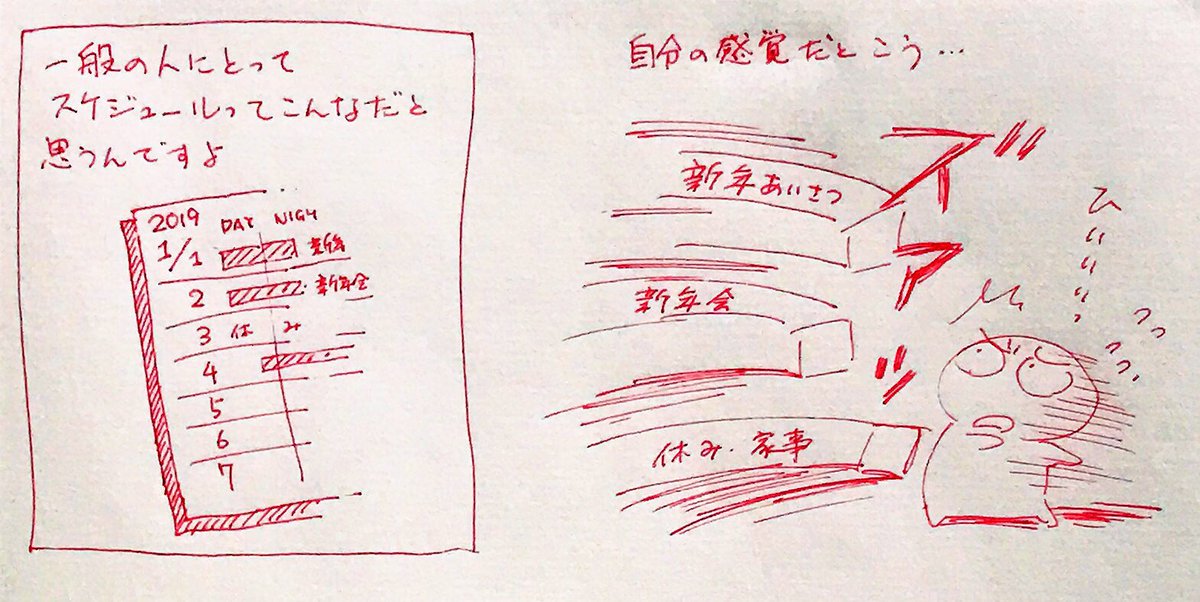 一般の人にとって
スケジュールってこんなだと
思うんですよ
2019 DAY NIGH
1/1 新年
2 新年会
3 休み
4
5
6
7
自分の感覚だとこう…
新年あいさつ
新年会
休み・家事
ズアアッ
ひぃぃぃぃ
っっっ